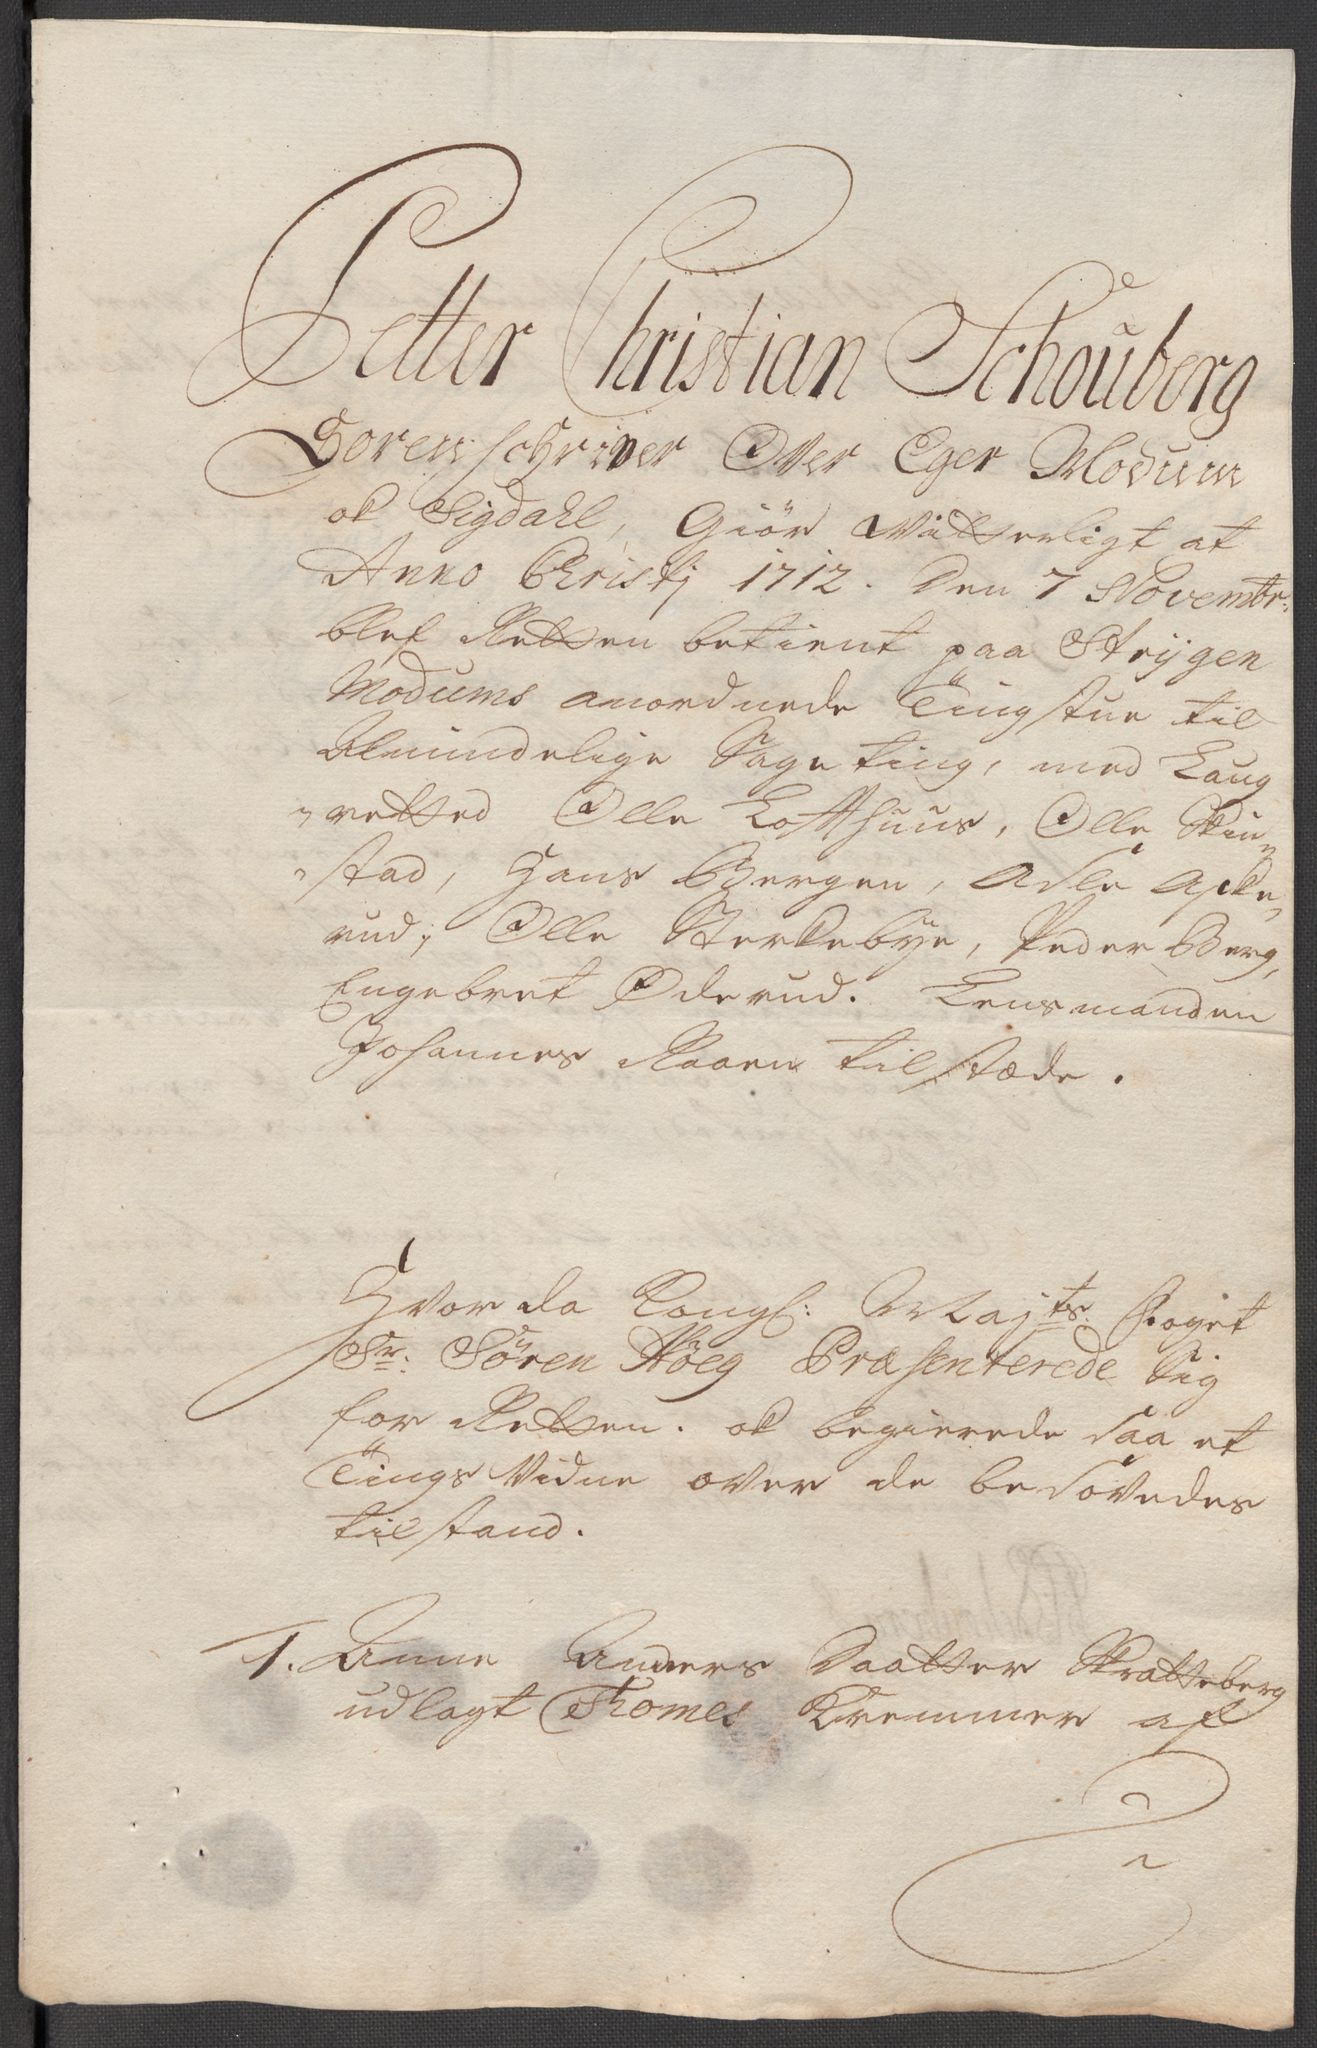 Petter Christian Schouborg
Sorenschriver Over Eger Modum
ok Sigdahl, Giör vitterligt at
Anno Christj 1712. den 7 Novembr:
blef Retten betient paa Strÿgen
Modums anordnede Tingstue til
Almindelige Sage ting, med Laug
retted Olle Loffthuus, Olle Skin
stad, Hans Bergen, Asle Aske
rud, Olle Sterkebÿe, Peder Berg,
Engebret Øderud. Lensmanden
Johannes Raaen tilstæde.
Hvor da Kongl: Majts: Foget
Sr: Sören Höeg Præsenterede sig
for Retten. ok begierede saa et
Tings Vidne over de besovedes
tilstand.
1. Anne Anders Daatter Skratteberg
udlagt Thomes Kremmer af